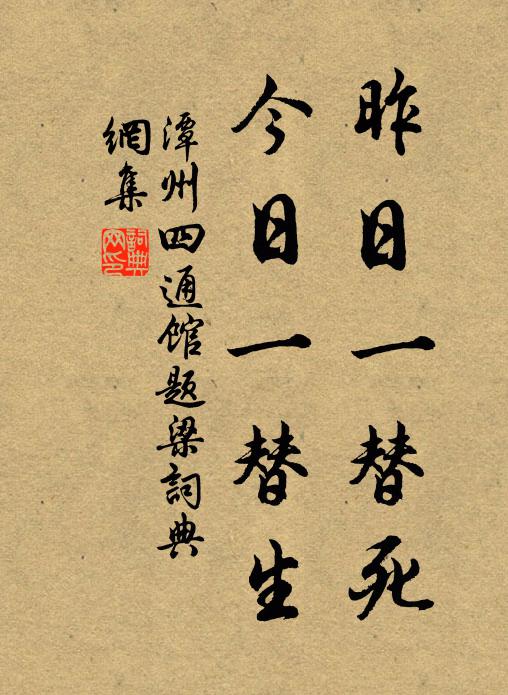 昨日一替死
今日一替生
潭州四通館題梁詞典
網集
詞典
网印